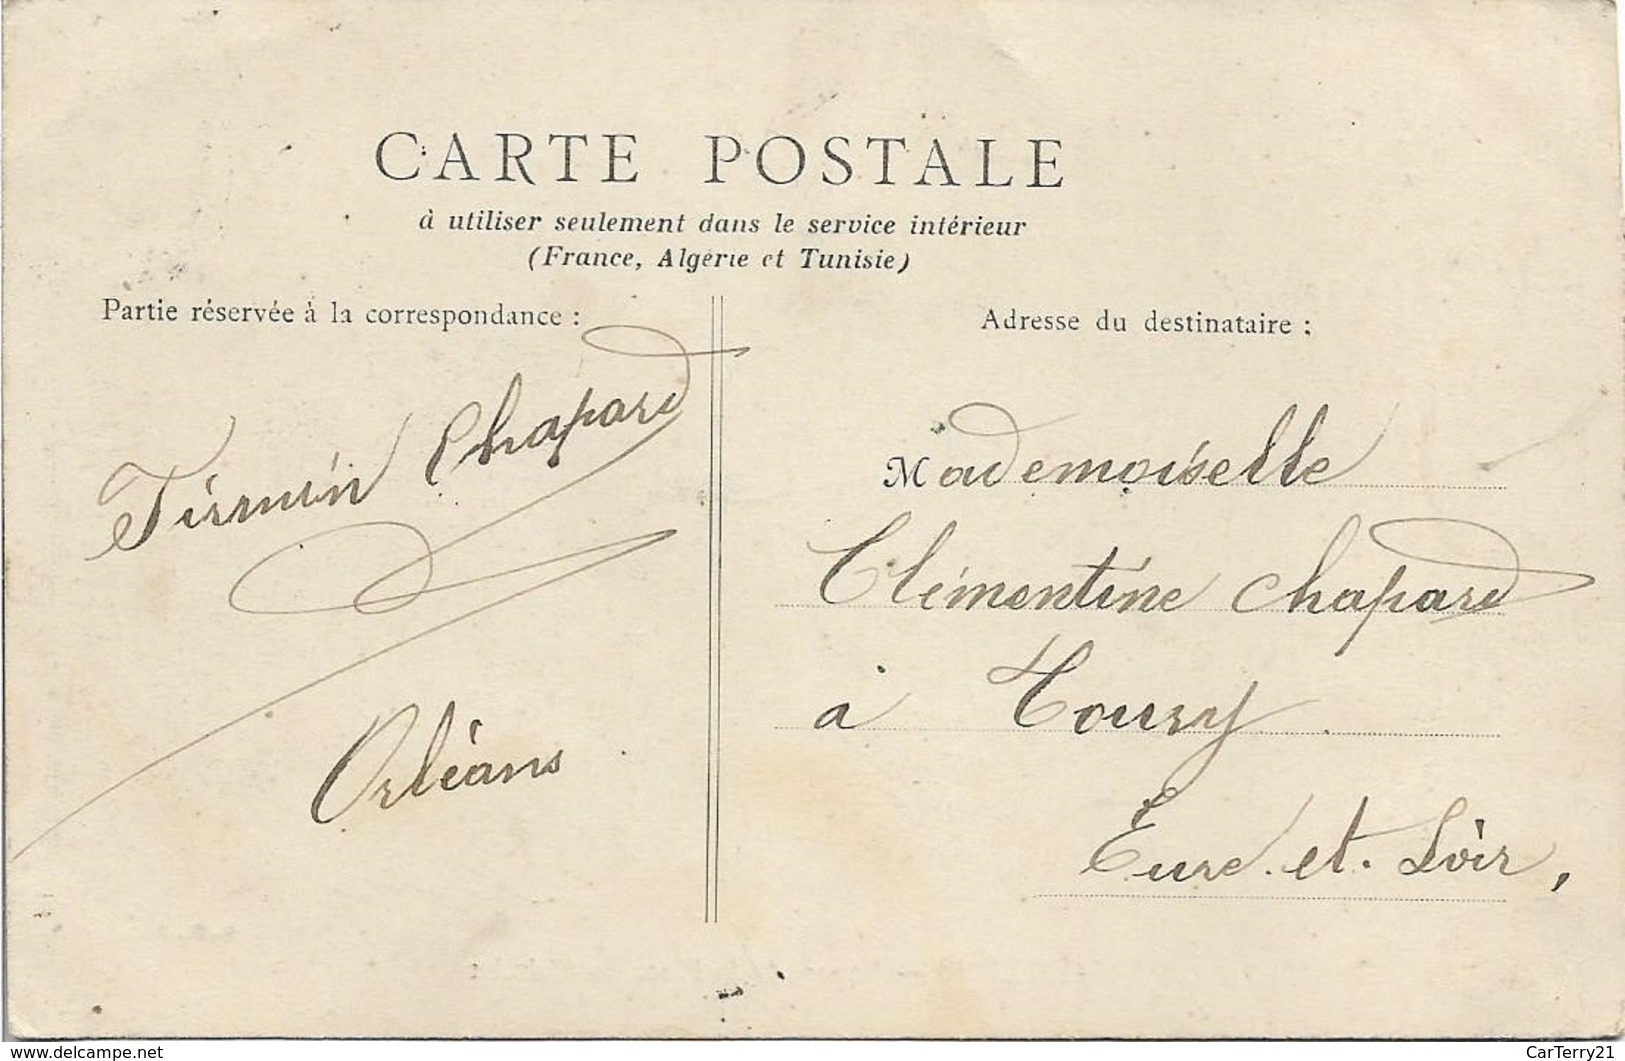 CARTE POSTALE
à utiliser seulement dans le service intérieur
(France, Algérie et Tunisie)
Partie réservée à la correspondance :
Firmin Chapard
Orléans
Adresse du destinataire :
Mademoiselle
Clémentine Chapard
à Toury
Eure-et-Loir,
www.delcampe.net
CarTerry21